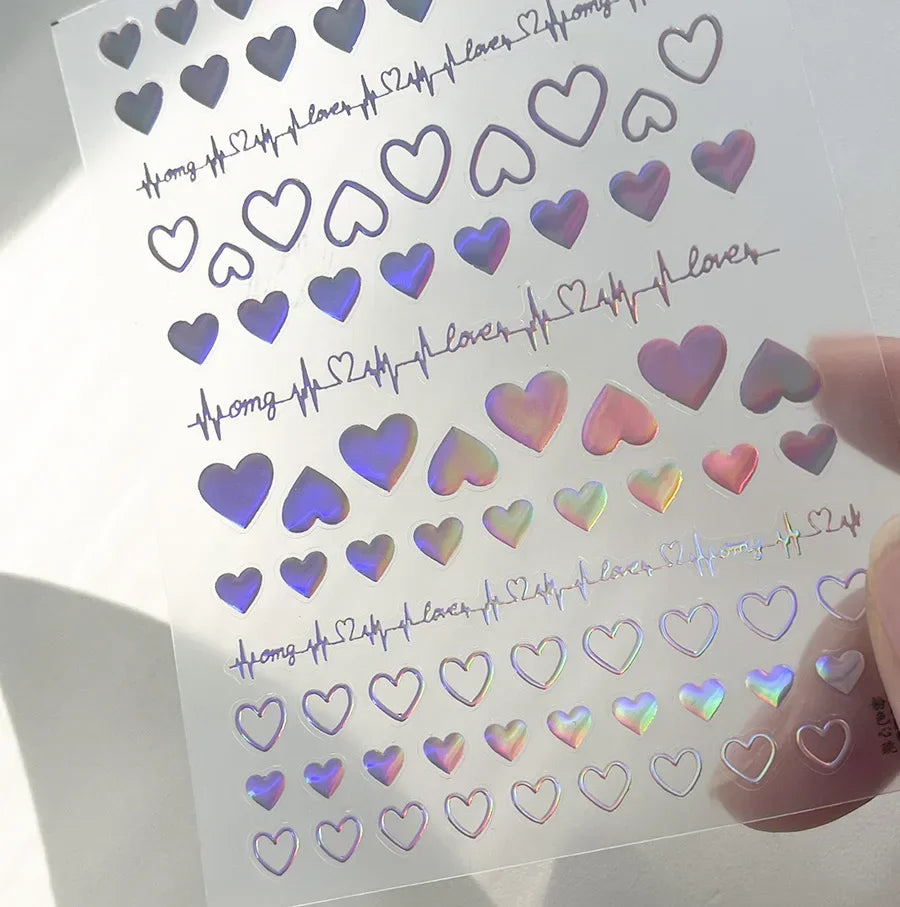 omg love love omg
omg love love
omg love love omg